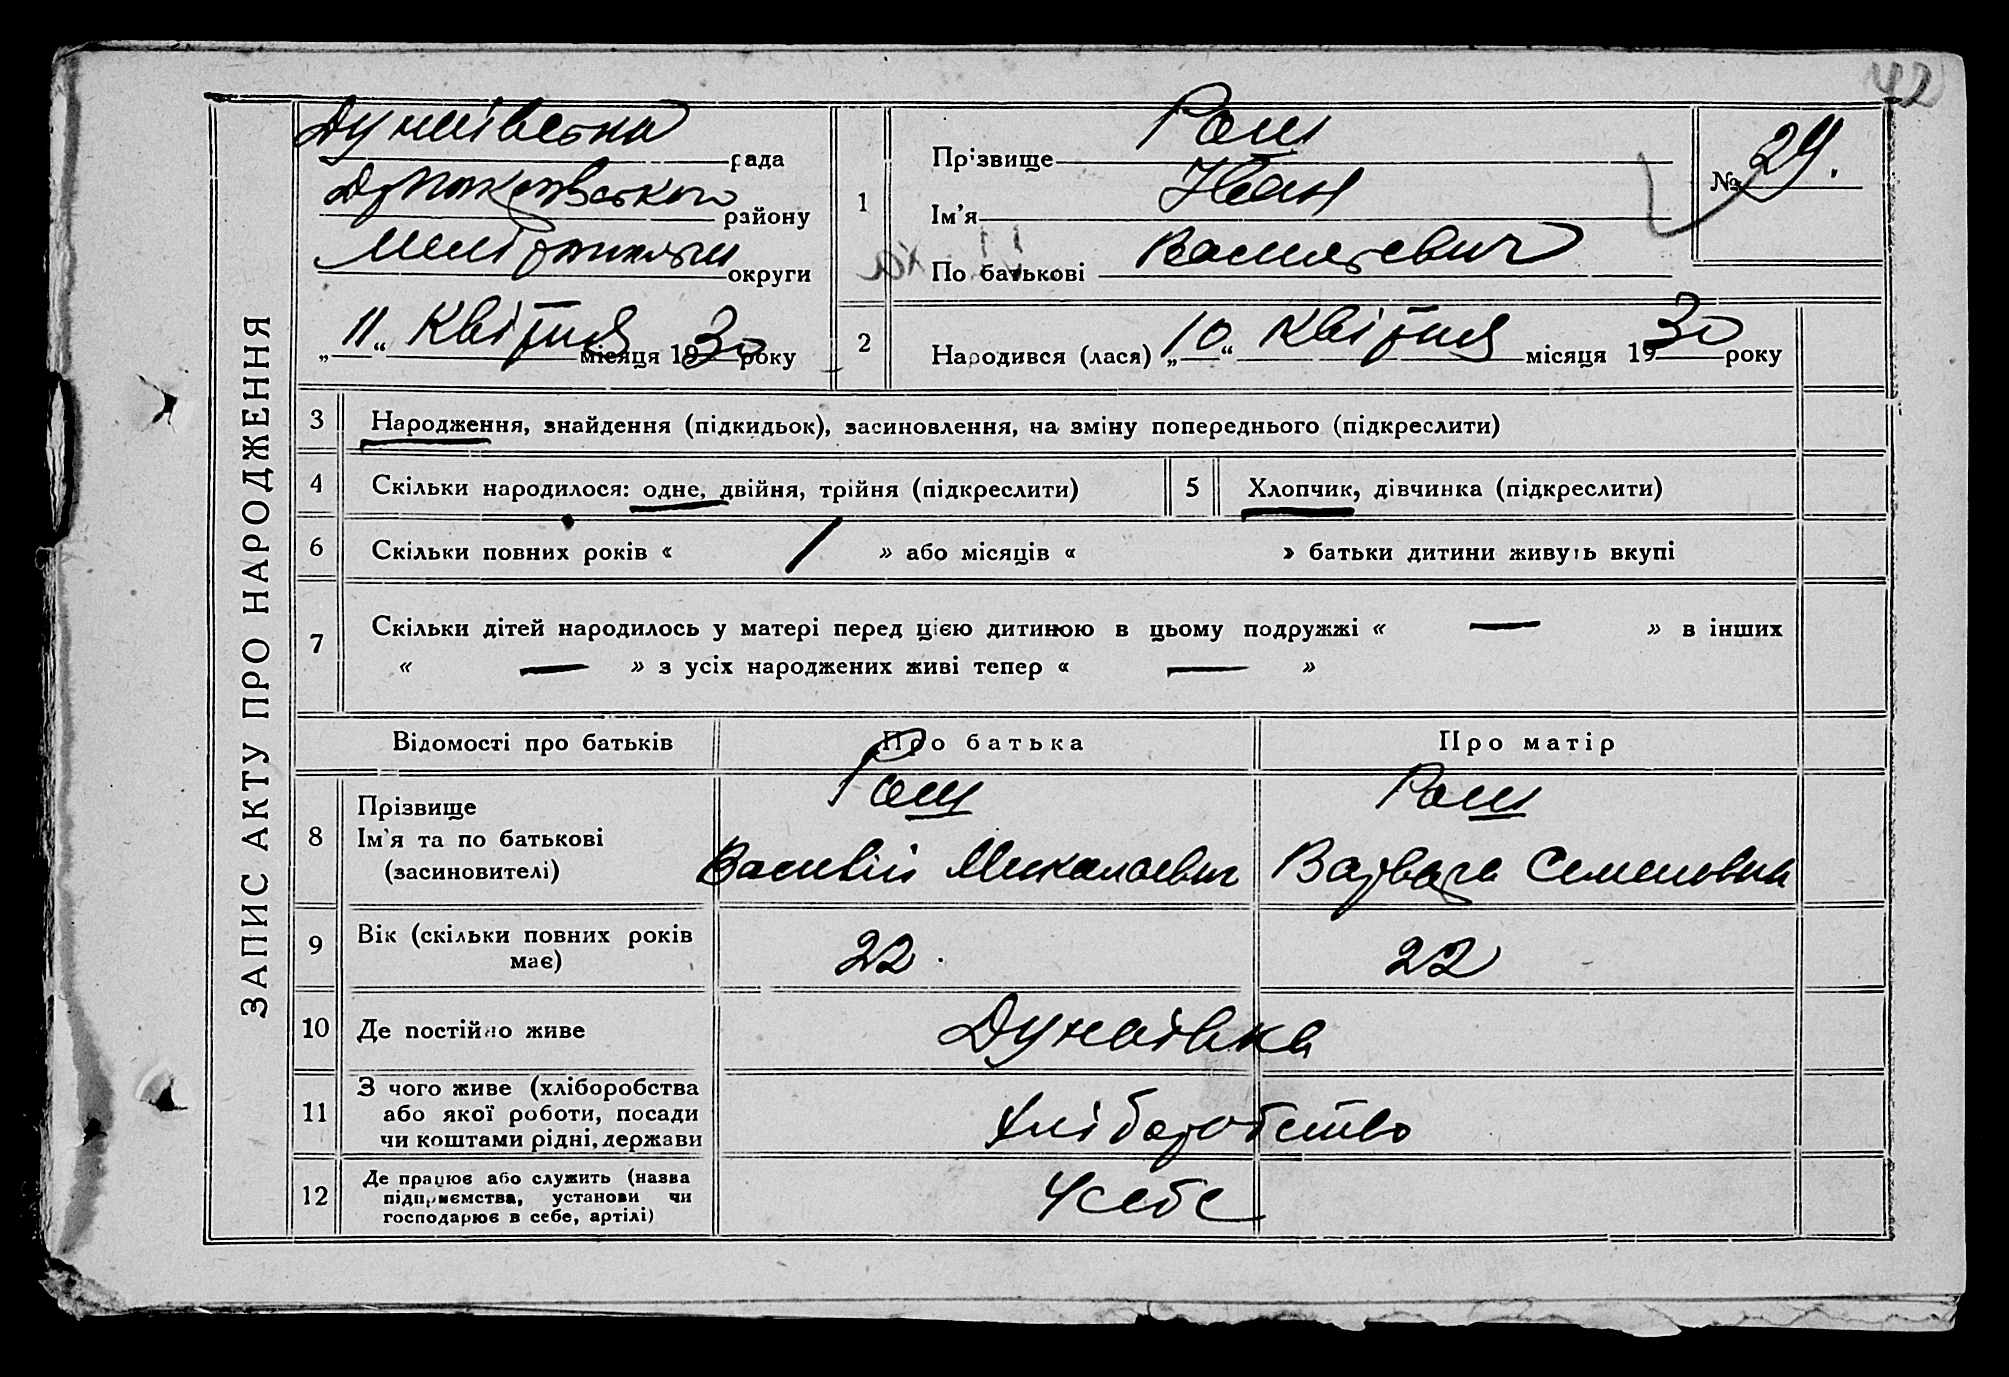 42
ЗАПИС АКТУ ПРО НАРОДЖЕННЯ
Дунаївська рада
району
округи
„11“ Квітня місяця 1930 року
1
Прізвище Рош
Ім’я Іван
По батькові Васильевич
№ 29.
2
Народився (лася) „10“ Квітня місяця 1930 року
3 Народження, знайдення (підкидьок), засиновлення, на зміну попереднього (підкреслити)
4 Скільки народилося: одне, двійня, трійня (підкреслити)
5 Хлопчик, дівчинка (підкреслити)
6 Скільки повних років « / » або місяців « » батьки дитини живуть вкупі
7 Скільки дітей народилось у матері перед цією дитиною в цьому подружжі « — » в інших
« — » з усіх народжених живі тепер « — »
Відомості про батьків Про батька Про матір
8 Прізвище
Ім’я та по батькові
(засиновителі)
Рош
Василій Миколаевич
Рош
Варвара Семеновна
9 Вік (скільки повних років
має)
22
22
10 Де постійно живе Дунаівка
11 З чого живе (хліборобства
або якої роботи, посади
чи коштами рідні, держави
Хліборобство
12 Де працює або служить (назва
підприємства, установи чи
господарює в себе, артілі)
У себе